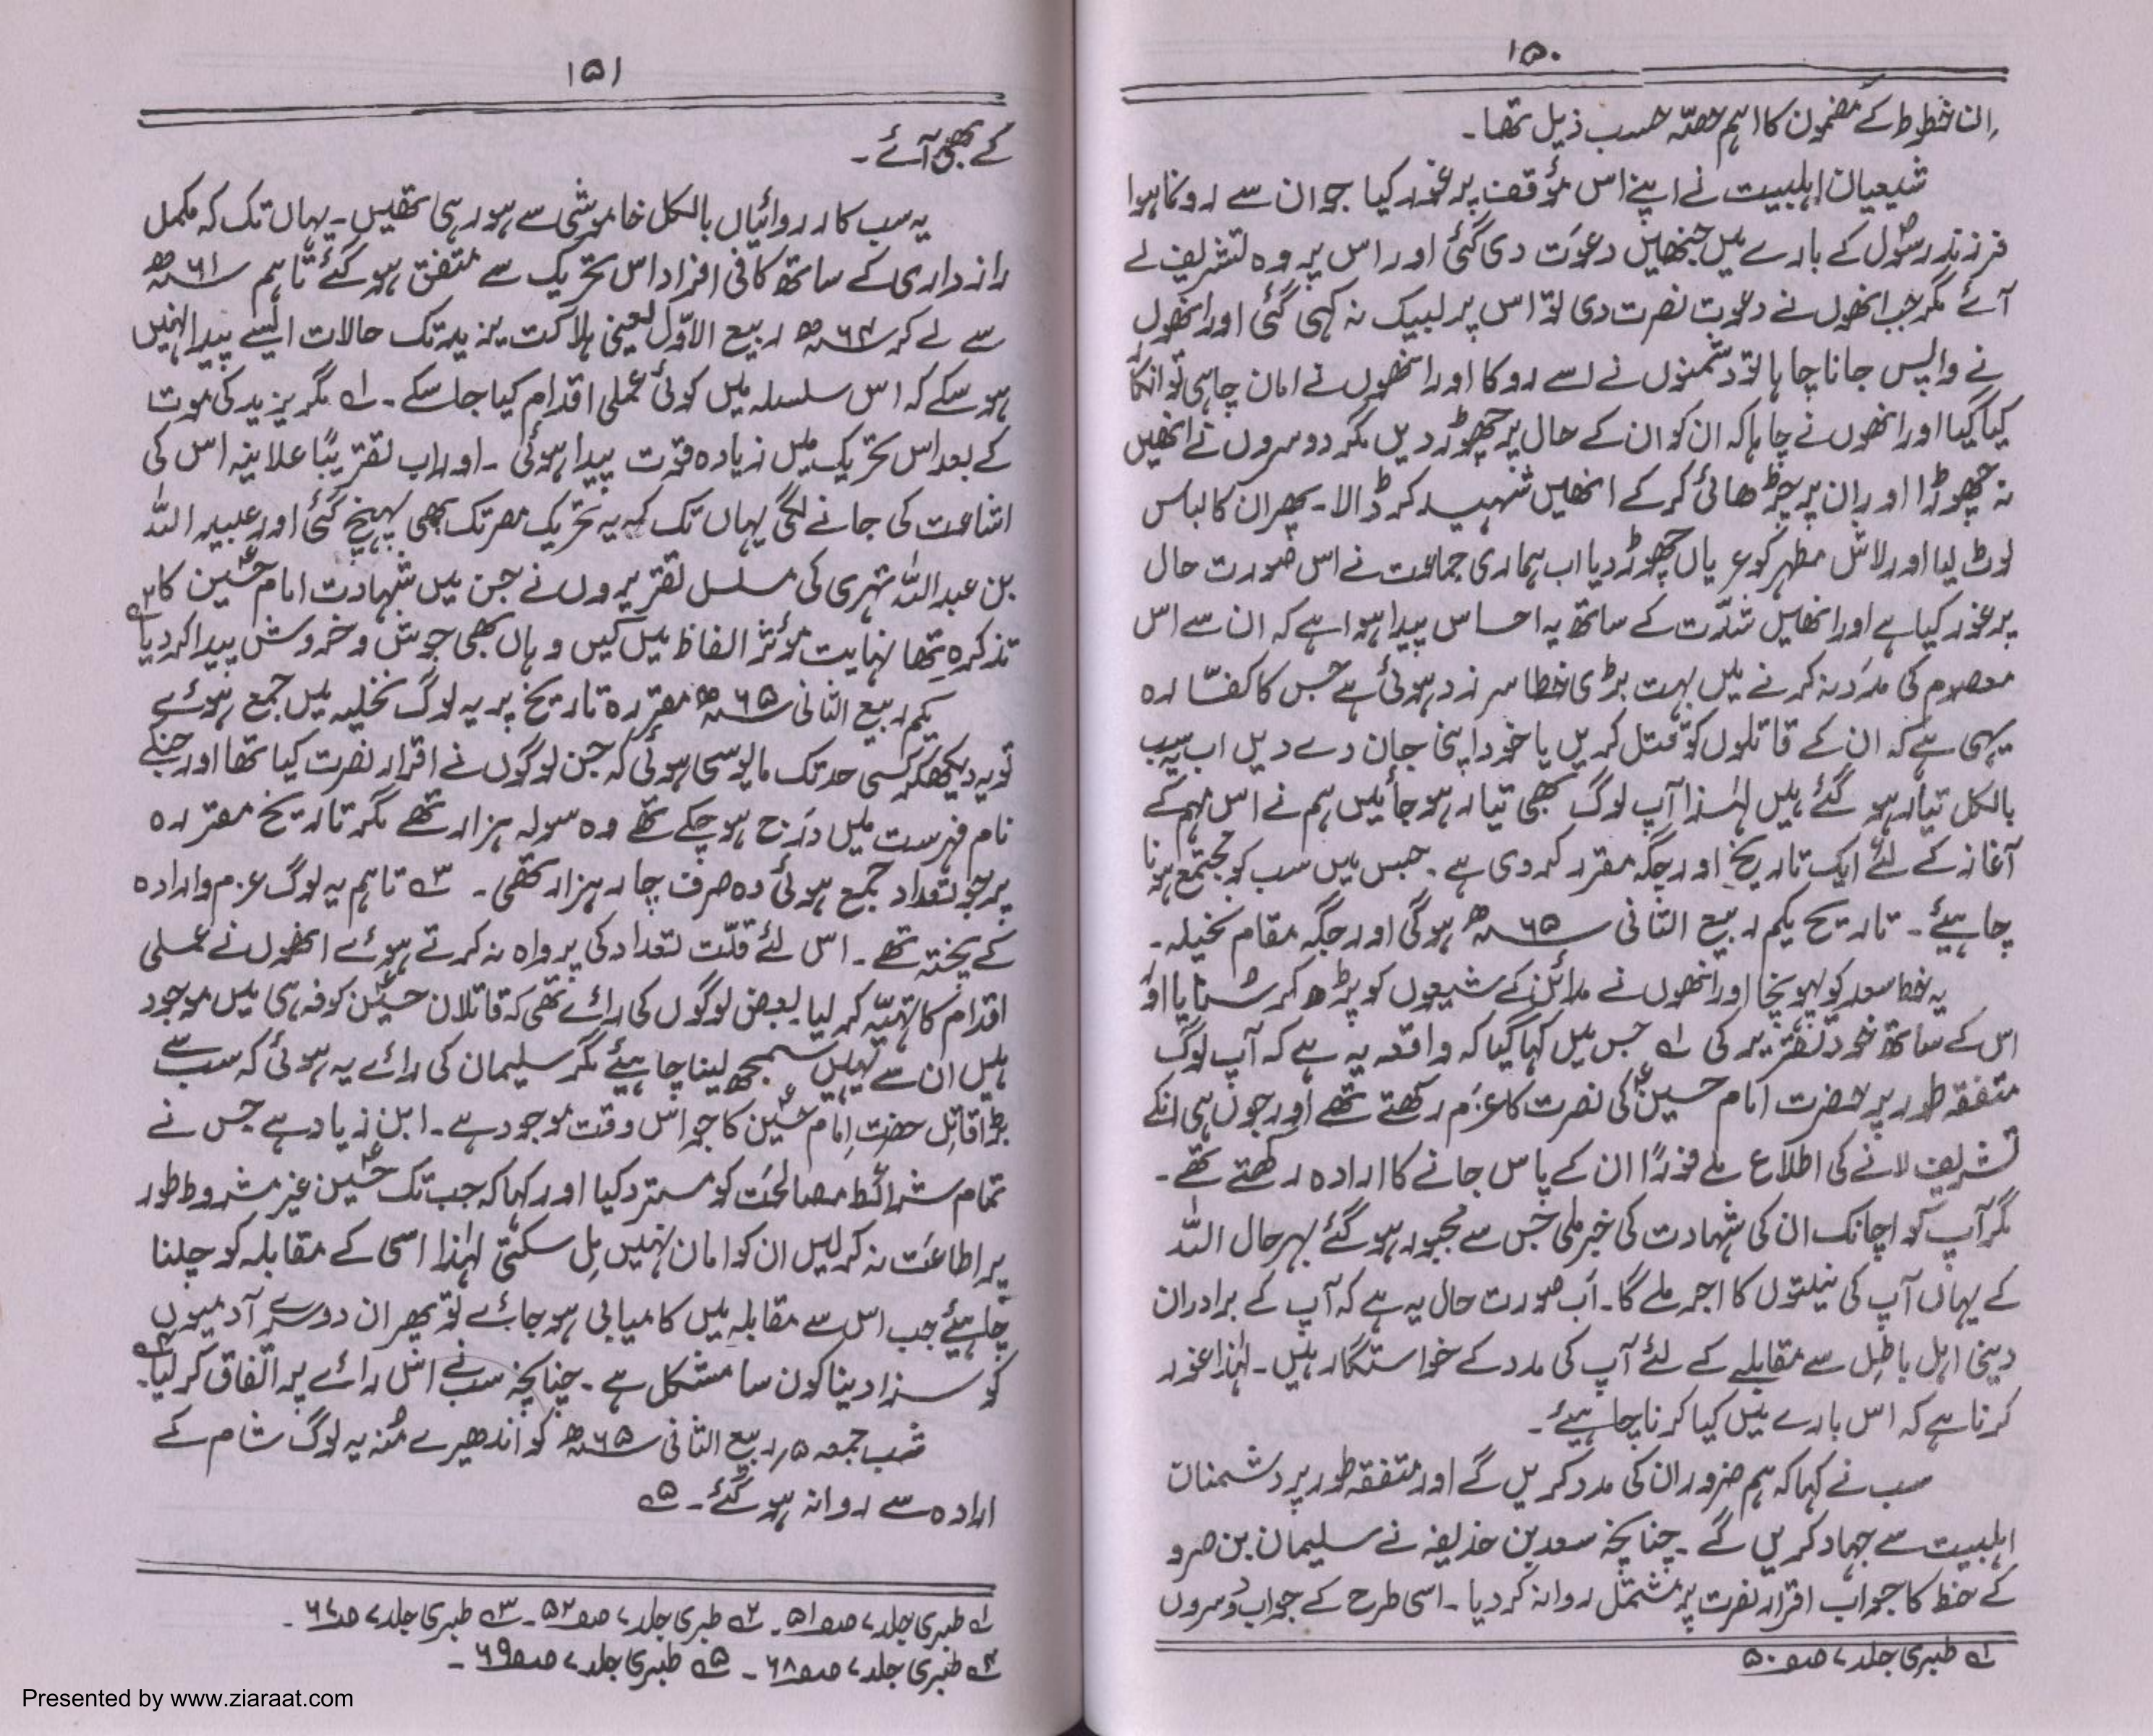 ۱۵۰
ان خطوط کے مضمون کا اہم حصّہ حسب ذیل تھا۔
شیعیان اہلبیت نے اپنے اس مؤقف پر غور کیا جو ان سے رونما ہوا
فرزند رسولؐ کے بارے میں جنھیں دعوت دی گئی اور اس پر وہ تشریف لے
آئے مگر جب انھوں نے دعوت نصرت دی تو اس پر لبیک نہ کہی گئی اور انھوں
نے واپس جانا چاہا تو دشمنوں نے اسے روکا اور انھوں نے امان چاہی تو انکار
کیا گیا اور انھوں نے چاہا کہ ان کو ان کے حال پر چھوڑ دیں مگر دوسروں نے انھیں
نہ چھوڑا اور ان پر چڑھائی کر کے انھیں شہید کر ڈالا۔ پھر ان کا لباس
لوٹ لیا اور لاش مطہر کو عریاں چھوڑ دیا اب ہماری جماعت نے اس صورت حال
پر غور کیا ہے اور انھیں شدّت کے ساتھ یہ احساس پیدا ہوا ہے کہ ان سے اس
معصوم کی مدد نہ کرنے میں بہت بڑی خطا سرزد ہوئی ہے جس کا کفّارہ
یہی ہے کہ ان کے قاتلوں کو قتل کریں یا خود اپنی جان دے دیں اب سب
بالکل تیار ہو گئے ہیں لہٰذا آپ لوگ بھی تیار ہو جائیں ہم نے اس مہم کے
آغاز کے لئے ایک تاریخ اور جگہ مقرر کر دی ہے۔ جس میں سب کو مجتمع ہونا
چاہیئے۔ تاریخ یکم ربیع الثانی ۶۵ھ ہوگی اور جگہ مقام نخیلہ۔
یہ خط سعد کو پہونچا اور انھوں نے مدائن کے شیعوں کو پڑھ کر سنایا اور
اس کے ساتھ خود تقریر کی ۱؎ جس میں کہا گیا کہ واقعہ یہ ہے کہ آپ لوگ
متفقہ طور پر حضرت امام حسینؑ کی نصرت کا عزم رکھتے تھے اور جوں ہی انکے
تشریف لانے کی اطلاع ملے فوراً ان کے پاس جانے کا ارادہ رکھتے تھے۔
مگر آپ کو اچانک ان کی شہادت کی خبر ملی جس سے مجبور ہو گئے بہر حال اللہ
کے یہاں آپ کی نیتوں کا اجر ملے گا۔ اب صورت حال یہ ہے کہ آپ کے برادران
دینی اہل باطل سے مقابلے کے لئے آپ کی مدد کے خواستگار ہیں۔ لہٰذا غور
کرنا ہے کہ اس بارے میں کیا کرنا چاہیئے۔
سب نے کہا کہ ہم ضرور ان کی مدد کریں گے اور متفقہ طور پر دشمنان
اہلبیت سے جہاد کریں گے۔ چنانچہ سعد بن حذیفہ نے سلیمان بن صرد
کے خط کا جواب اقرار نصرت پر مشتمل روانہ کر دیا۔ اسی طرح کے جواب دوسروں
۱؎ طبری جلد ۷ صہ ۵۰
۱۵۱
کے بھی آئے۔
یہ سب کارروائیاں بالکل خاموشی سے ہو رہی تھیں۔ یہاں تک کہ مکمل
رازداری کے ساتھ کافی افراد اس تحریک سے متفق ہو گئے تاہم ۶۱ھ
سے لے کر ۶۴ھ ربیع الاوّل یعنی ہلاکت یزید تک حالات ایسے پیدا نہیں
ہو سکے کہ اس سلسلہ میں کوئی عملی اقدام کیا جا سکے۔ ۱؎ مگر یزید کی موت
کے بعد اس تحریک میں زیادہ قوّت پیدا ہوئی۔ اور اب تقریبًا علانیہ اس کی
اشاعت کی جانے لگی یہاں تک کہ یہ تحریک مصر تک بھی پہنچ گئی اور عبید اللہ
بن عبد اللہ تہری کی مسلسل تقریروں نے جن میں شہادت امام حسینؑ کا
تذکرہ تھا نہایت مؤثر الفاظ میں کیں وہاں بھی جوش و خروش پیدا کر دیا ۲؎
یکم ربیع الثانی ۶۵ھ مقررہ تاریخ پر یہ لوگ نخیلہ میں جمع ہوئے
تو یہ دیکھکر کسی حد تک مایوسی ہوئی کہ جن لوگوں نے اقرار نصرت کیا تھا اور جنکے
نام فہرست میں درج ہو چکے تھے وہ سولہ ہزار تھے مگر تاریخ مقررہ
پر جو تعداد جمع ہوئی وہ صرف چار ہزار تھی۔ ۳؎ تاہم یہ لوگ عزم و ارادہ
کے پختہ تھے۔ اس لئے قلّت تعداد کی پرواہ نہ کرتے ہوئے انھوں نے عملی
اقدام کا تہیّہ کر لیا بعض لوگوں کی رائے تھی کہ قاتلان حسینؑ کوفہ ہی میں موجود
ہیں ان سے یہیں سمجھ لینا چاہیئے مگر سلیمان کی رائے یہ ہوئی کہ سب سے
بڑا قاتل حضرت امام حسینؑ کا جو اس وقت موجود ہے۔ ابن زیاد ہے جس نے
تمام شرائط مصالحت کو مسترد کیا اور کہا کہ جب تک حسینؑ غیر مشروط طور
پر اطاعت نہ کر لیں ان کو امان نہیں مل سکتی لہٰذا اسی کے مقابلہ کو چلنا
چاہیئے جب اس سے مقابلہ میں کامیابی ہو جائے تو پھر ان دوسرے آدمیوں
کو سزا دینا کون سا مشکل ہے۔ چنانچہ سب نے اس رائے پر اتفاق کر لیا۔ ۴؎
شب جمعہ ۵؍ ربیع الثانی ۶۵ھ کو اندھیرے مُنہ یہ لوگ شام کے
ارادہ سے روانہ ہو گئے۔ ۵؎
۱؎ طبری جلد ۷ صہ ۵۱۔ ۲؎ طبری جلد ۷ صہ ۵۲۔ ۳؎ طبری جلد ۷ صہ ۶۷۔
۴؎ طبری جلد ۷ صہ ۶۸۔ ۵؎ طبری جلد ۷ صہ ۶۹۔
Presented by www.ziaraat.com